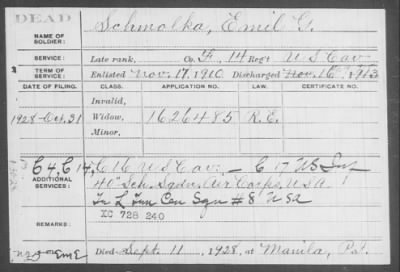 DEAD
NAME OF SOLDIER: Schmolka, Emil G.
SERVICE: Late rank, Co. F, 14 Reg't U S Cav.
TERM OF SERVICE: Enlisted Nov. 17, 1910 Discharged Nov. 16, 1913
DATE OF FILING. CLASS. APPLICATION NO. LAW. CERTIFICATE NO.
Invalid,
1928-Oct. 31 Widow, 1626485 R.E.
Minor,
C 4, C 14, C 16 U S Cav. - C 17 US Inf
ADDITIONAL SERVICES: 40" Sch. Sqdn. Air Corps, USA
Cen Sqn #8 USA
XC 728 240
REMARKS:
Died Sept. 11, 1928, at Manila, P.I.